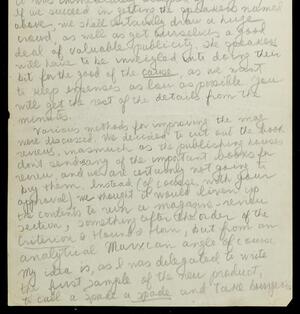 If we succeed in getting the speakers named
above, we shall certainly draw a huge
crowd, as well as get ourselves a good
deal of valuable publicity. The speakers
will have to be inveigled into doing their
bit for the good of the cause, as we want
to keep expenses as low as possible. You
will get the rest of the details from the
minutes.
Various methods for improving the mag
were discussed. We decided to cut out the book
reviews, inasmuch as the publishing houses
don't send any of the important books for
review, and we are certainly not going to
buy them. Instead (of course, with your
approval) we thought it would liven up
the contents to run a magazine-review
section, something after the order of the
Criterion & Hound & Horn, but from an
analytical Marxian angle of course.
My idea is, as I was delegated to write
the first sample of the new product,
to call a spade a spade and take